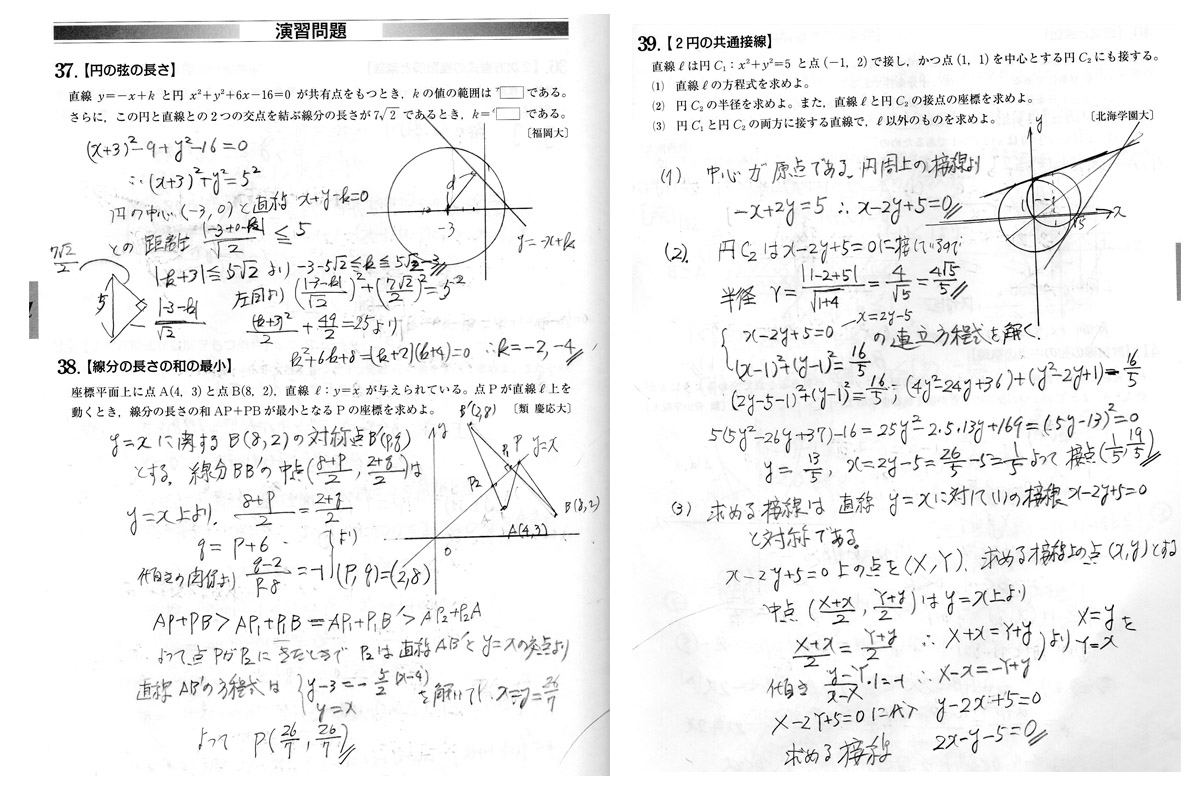 演習問題
37.【円の弦の長さ】
直線 y=-x+k と円 x²+y²+6x-16=0 が共有点をもつとき，k の値の範囲は ア□ である。
さらに，この円と直線との2つの交点を結ぶ線分の長さが 7√2 であるとき，k=イ□ である。
〔福岡大〕
(x+3)²-9+y²-16=0
∴(x+3)²+y²=5²
円の中心(-3,0)と直線 x+y-k=0
との距離は |-3+0-k|/√2 ≦5
|k+3|≦5√2 より -3-5√2≦k≦5√2-3
左図より (|-3-k|/√2)²+(7√2/2)²=5²
(k+3)²/2+49/2=25より
k²+6k+8=(k+2)(k+4)=0 ∴k=-2,-4
7√2/2
5
|-3-k|/√2
d
-3
y=-x+k
38.【線分の長さの和の最小】
座標平面上に点 A(4, 3) と点 B(8, 2)，直線 ℓ：y=x が与えられている。点 P が直線 ℓ 上を
動くとき，線分の長さの和 AP+PB が最小となる P の座標を求めよ。
〔類 慶応大〕
y=xに関するB(8,2)の対称点B'(p,q)
とする。線分BB'の中点(8+p/2, 2+q/2)は
y=x上より, 8+p/2=2+q/2
q=p+6
傾きの関係より q-2/p-8=-1
より
(p,q)=(2,8)
B'(2,8)
y
P₁
P
y=x
P₂
B(8,2)
A(4,3)
0
AP+PB>AP₁+P₁B=AP₁+P₁B'>AP₂+P₂A
よって点PがP₂にきたときで P₂は直線AB'とy=xの交点より
直線AB'の方程式は { y-3=-5/2(x-4)
y=x
を解いて x=y=26/7
よって P(26/7, 26/7)
39.【2円の共通接線】
直線 ℓ は円 C₁：x²+y²=5 と点(-1, 2)で接し，かつ点(1, 1)を中心とする円 C₂ にも接する。
(1) 直線 ℓ の方程式を求めよ。
(2) 円 C₂ の半径を求めよ。また，直線 ℓ と円 C₂ の接点の座標を求めよ。
(3) 円 C₁ と円 C₂ の両方に接する直線で，ℓ 以外のものを求めよ。
〔北海学園大〕
y
x
√5
(1) 中心が原点である円周上の接線より
-x+2y=5 ∴x-2y+5=0
(2). 円C₂はx-2y+5=0に接しているので
半径 r=|1-2+5|/√1+4=4/√5=4√5/5
{ x-2y+5=0 x=2y-5
(x-1)²+(y-1)²=16/5 の連立方程式を解く.
(2y-5-1)²+(y-1)²=16/5; (4y²-24y+36)+(y²-2y+1)=16/5
5(5y²-26y+37)-16=25y²-2・5・13y+169=(5y-13)²=0
y=13/5, x=2y-5=26/5-5=1/5 よって接点(1/5, 13/5)
(3) 求める接線は直線 y=xに対して(1)の接線 x-2y+5=0
と対称である。
x-2y+5=0上の点を(X,Y). 求める接線上の点(x,y)とする
中点(X+x/2, Y+y/2)はy=x上より
X+x/2=Y+y/2 ∴X+x=Y+y
傾き y-Y/x-X・1=-1 ∴X-x=-Y+y
より
X=y
Y=x を
X-2Y+5=0に代入 y-2x+5=0
求める接線 2x-y-5=0